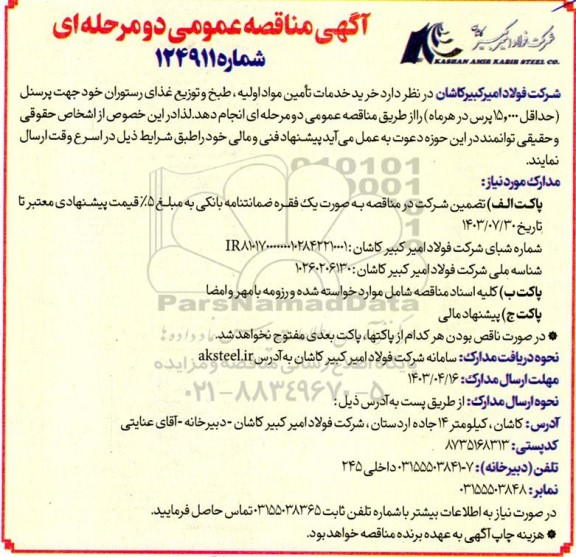 آگهی مناقصه عمومی دو مرحله ای
شماره ۱۲۴۹۱۱
شرکت فولاد امیر کبیر کاشان
KASHAN AMIR KABIR STEEL CO.
شرکت فولاد امیرکبیر کاشان در نظر دارد خرید خدمات تأمین مواد اولیه ، طبخ و توزیع غذای رستوران خود جهت پرسنل
(حداقل ۱۵,۰۰۰ پرس در هرماه) را از طریق مناقصه عمومی دو مرحله ای انجام دهد. لذا در این خصوص از اشخاص حقوقی
و حقیقی توانمند در این حوزه دعوت به عمل می آید پیشنهاد فنی و مالی خود را طبق شرایط ذیل در اسرع وقت ارسال
نمایند.
مدارک مورد نیاز :
پاکت الف) تضمین شرکت در مناقصه به صورت یک فقره ضمانتنامه بانکی به مبلغ ۵٪ قیمت پیشنهادی معتبر تا
تاریخ ۱۴۰۳/۰۷/۳۰
شماره شبای شرکت فولاد امیر کبیر کاشان :
شناسه ملی شرکت فولاد امیر کبیر کاشان : ۱۰۲۶۰۲۰۶۱۳۰
پاکت ب) کلیه اسناد مناقصه شامل موارد خواسته شده و رزومه با مهر و امضا
پاکت ج) پیشنهاد مالی
* در صورت ناقص بودن هر کدام از پاکتها، پاکت بعدی مفتوح نخواهد شد.
نحوه دریافت مدارک: سامانه شرکت فولاد امیر کبیر کاشان به آدرس aksteel.ir
مهلت ارسال مدارک: ۱۴۰۳/۰۴/۱۶
نحوه ارسال مدارک: از طریق پست به آدرس ذیل :
آدرس: کاشان ، کیلومتر ۱۴ جاده اردستان ، شرکت فولاد امیر کبیر کاشان - دبیرخانه - آقای عنایتی
کدپستی: ۸۷۳۵۱۶۸۳۱۳
تلفن (دبیرخانه) : ۷-۰۳۱۵۵۵۰۳۸۴۱ داخلی ۲۴۵
نمابر: ۰۳۱۵۵۵۰۳۸۴۸
در صورت نیاز به اطلاعات بیشتر با شماره تلفن ثابت ۰۳۱۵۵۰۳۸۳۶۵ تماس حاصل فرمایید.
* هزینه چاپ آگهی به عهده برنده مناقصه خواهد بود.
ParsNamadData
۰۲۱-۸۸۳۴۹۶۷۰-۵